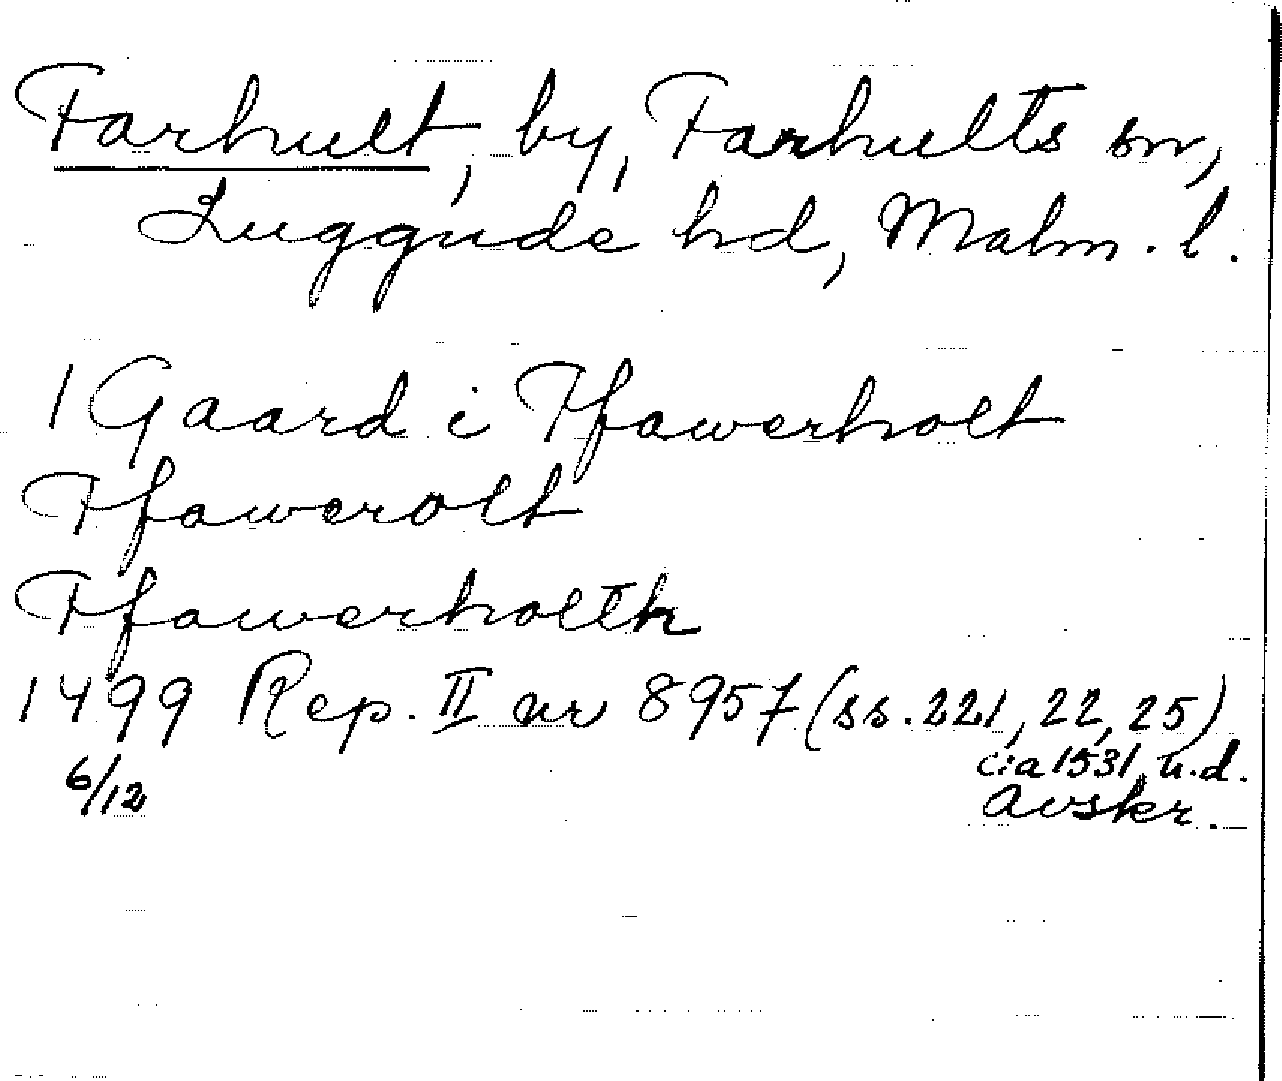 Farhult, by, Farhults sn,
Luggude hd, Malm. l.
1 Gaard i Ffawerholt
Ffawerolt
Ffawerholth
1499 Rep. II nr 8957 (ss. 221, 22, 25)
6/12 c:a 1531, u.d.
Avskr.